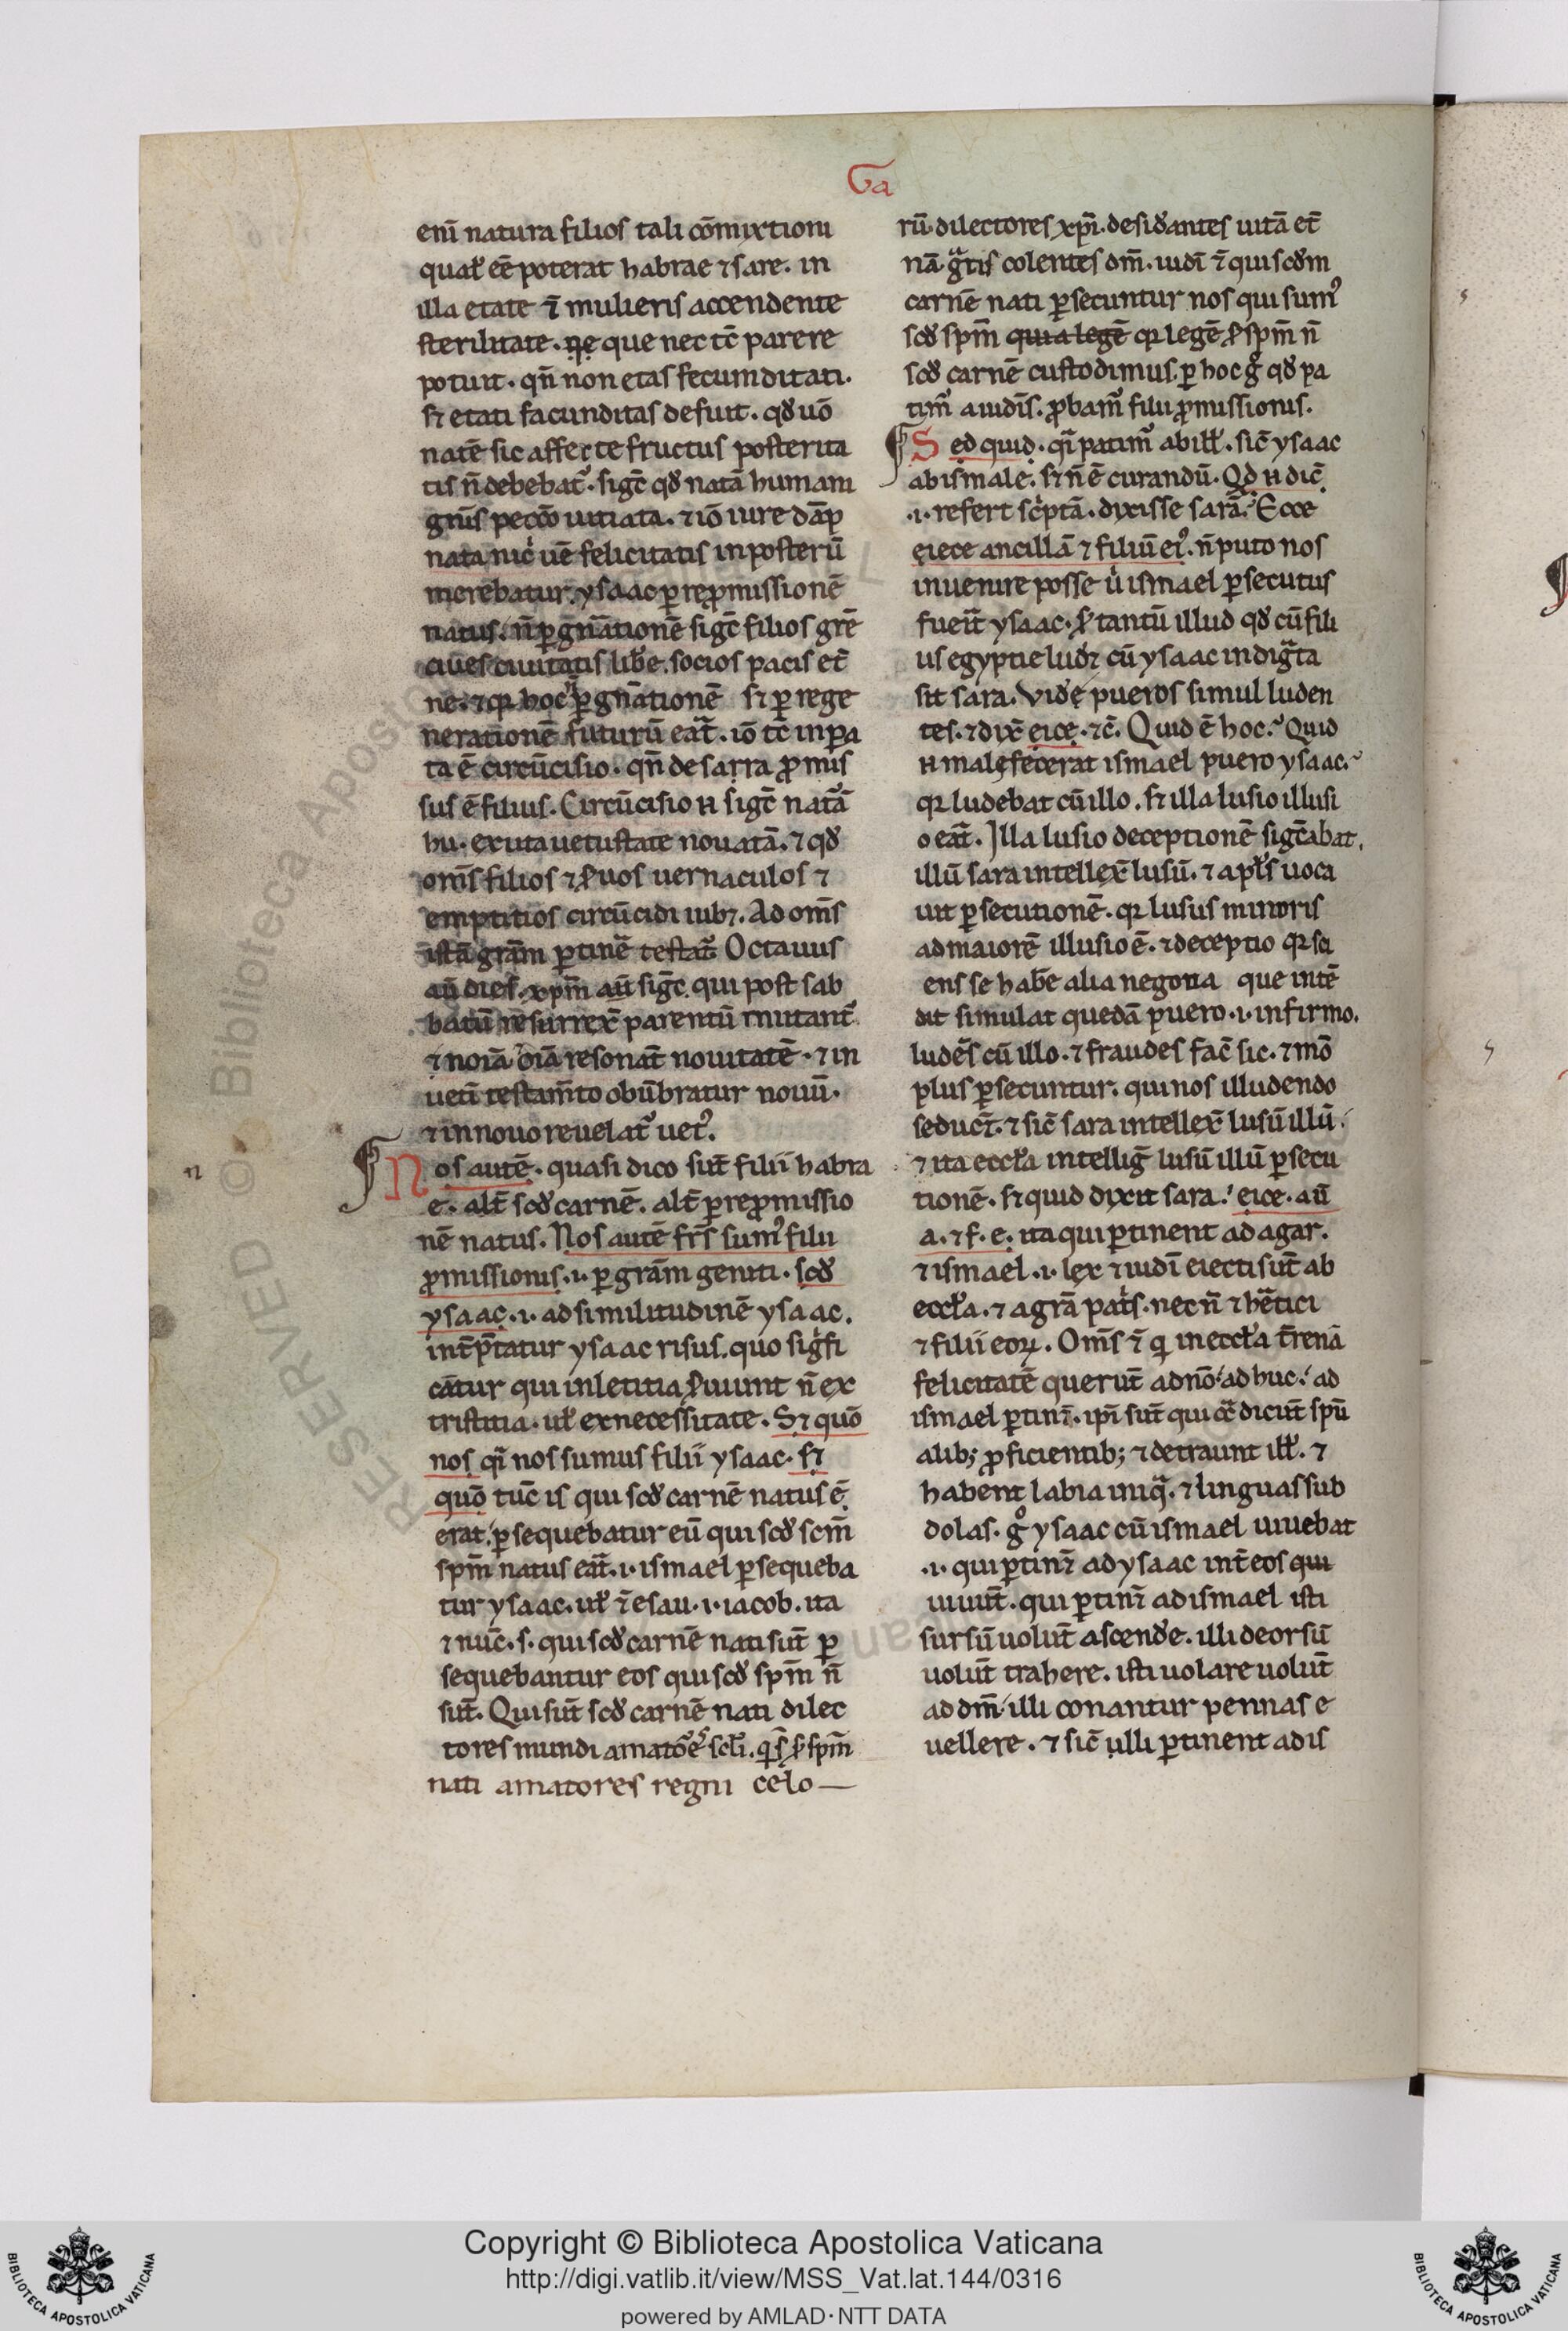 Ga
eni᷑ natura filios tali cōmixtioni
qual̕ eē poterat habrae ⁊ sare. in
illa etate ī mulieris accendente
sterilitate. ne que nec tc̄ parere
potuit. qn̄ non etas fecunditati.
sꝫ etati facunditas defuit. qđ uō
natē sic affecte fructus posterita
tis n̄ debebat᷑. sigc̄ qđ natā humani
gn̄is pecc̄o uitiata. ⁊ iō iure dāp
nata nic̄ ūe felicitatis in posterū
merebatur. ysaac ꝑ reꝓmissionē
natus. n̄ ꝑ gn̄ationē sigc̄ filios grē
ciues ciuitatis lib̄e. socios pacis et̄
ne. ⁊ qꝛ hoc ꝑ gn̄ationē sꝫ ꝑ rege
nerationē futurū eāt. iō tc̄ inpa
ta ē circūcisio. qn̄ de sarra ꝓmis
sus ē filius. Circūcisio n̄ sigc̄ nat᷑ā
hu. exuta uetustate nouatā. ⁊ qđ
om̄s filios ⁊ ẜuos uernaculos ⁊
emptitios circūcidi iubꝫ. Ad om̄s
istā grām ꝑtinē testat᷑ Octauus
aū dies xp̄m aū sigc̄. qui post sab
batū resurrex̄ parentū mutant᷑
⁊ noīa oīa resonāt nouitatē. ⁊ in
uet̄i testam̄to obūbratur nouū.
⁊ in nouo reuelat᷑ uet᷒.
Nos autē. quasi dico sūt filii habra
e. alt̄ scđ carnē. alt̄ ꝑ reꝓmissio
nē natus. Nos autē frs̄ sum᷒ filii
ꝓmissionis. .i. ꝑ grām geniti. scđ
ysaac. .i. ad similitudinē ysaac.
int̄p̄tatur ysaac risus. quo sig̕fi
cātur qui in letitia ẜuiunt n̄ ex
tristitia. ul̕ ex necessitate. Sꝫ quō
nos qi᷑ nos sumus filii ysaac. sꝫ
quō tūc is qui scđ carnē natus ē
erat. ꝑsequebatur eū qui scđ scm̄
spm̄ natus eāt. .i. ismael ꝑsequeba
tur ysaac. ul̕ ī esau .i. iacob. ita
⁊ nūc. s. qui scđ carnē nati sūt ꝑ
sequebantur eos qui scđ spm̄ n̄
sūt. Qui sūt scđ carnē nati dilec
tores mundi amatōes scl̄i. qi s scđ spm̄
nati amatores regni celo —
rū. dilectores xp̄i. desiđantes uitā et̄
nā. gᵃtis colentes dm̄. iudī ī qui scđm
carnē nati ꝑsecuntur nos qui sum᷒
scđ spm̄ quia legē qꝛ legē ẜ spm̄ n̄
scđ carnē custodimus. ꝑ hoc g̊ qđ pa
tim᷒ a iudīs. ꝓbam᷒ filii ꝓmissionis.
Sed quid. qi᷑ patim᷒ ab ill̕. sic̄ ysaac
ab ismale. sꝫ n̄ ē curandū. Qđ n̄ dic̄
.i. refert sc̕ptā. dixisse sarā. Ecce
eiece ancillā ⁊ filiū ei᷒. n̄ puto nos
inuenire posse u̇ ismael ꝑsecutus
fuerīt ysaac. ẜ tantū illud qđ cū fili
us egyptie ludꝫ cū ysaac indigᵃta
sit sara. Vide pueros simul luden
tes. ⁊ dix̄ eice. ⁊c̄. Quid ē hoc.? Quid
n̄ male fecerat ismael puero ysaac.?
qꝛ ludebat cū illo. sꝫ illa lusio illusi
o eāt. Illa lusio deceptionē sigc̄abat.
illū sara intellex̄ lusū. ⁊ apl̕s uoca
uit ꝑsecutionē. qꝛ lusus minoris
ad maiorē illusio ē. ⁊ deceptio qꝛ sci
ens se hab̄e alia negotia que intē
dit simulat quedā puero .i. infirmo.
ludēs cū illo. ⁊ fraudes fac̄ sic. ⁊ mō
plus ꝑsecuntur. qui nos illudendo
seduct̄. ⁊ sic̄ sara intellex̄ lusū illū.
⁊ ita eccl̕a intelliḡ lusū illū ꝑsecu
tionē. sꝫ quid dixit sara.? eice. aū
a. ⁊ f. e. ita qui ꝑtinent ad agar.
⁊ ismael .i. lex ⁊ iudī eiecti sūt ab
eccl̕a. ⁊ a grā pat̕s. nec n̄ ⁊ h̄etici
⁊ filii eoꝝ. Om̄s ī qi in eccl̕a t̄renā
felicitatē querūt a dn̄o adhuc. ad
ismael ꝑtinꝫ. ip̄i sūt qui c̄c̄ dicūt spū
alib; ꝓficientib; ⁊ detraunt ill̕. ⁊
habent labia iniqᵃ. ⁊ linguas sub
dolas. g̊ ysaac cū ismael uiuebat
.i. qui ꝑtinꝫ ad ysaac int̄ eos qui
uiuūt. qui ꝑtinꝫ ad ismael isti
sursū uolūt ascende. illi deorsū
uolūt trahere. isti uolare uolūt
ad dm̄ illi conantur pennas e
uellere. ⁊ sic̄ illi ꝑtinent ad is
n
RESERVED © Biblioteca Aposto
Copyright © Biblioteca Apostolica Vaticana
http://digi.vatlib.it/view/MSS_Vat.lat.144/0316
powered by AMLAD·NTT DATA
BIBLIOTECA APOSTOLICA VATICANA
BIBLIOTECA APOSTOLICA VATICANA